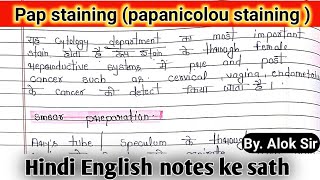 Pap staining (papanicolou staining )
यह cytology department का most important
stain होता है इस stain के through female
Reproductive systems में pre and post
cancer such as: cervical, vagina, endometol
के cancer को detect किया जाता है।
smear preparation:-
Ary's tube / speculum के through
By. Alok Sir
Hindi English notes ke sath